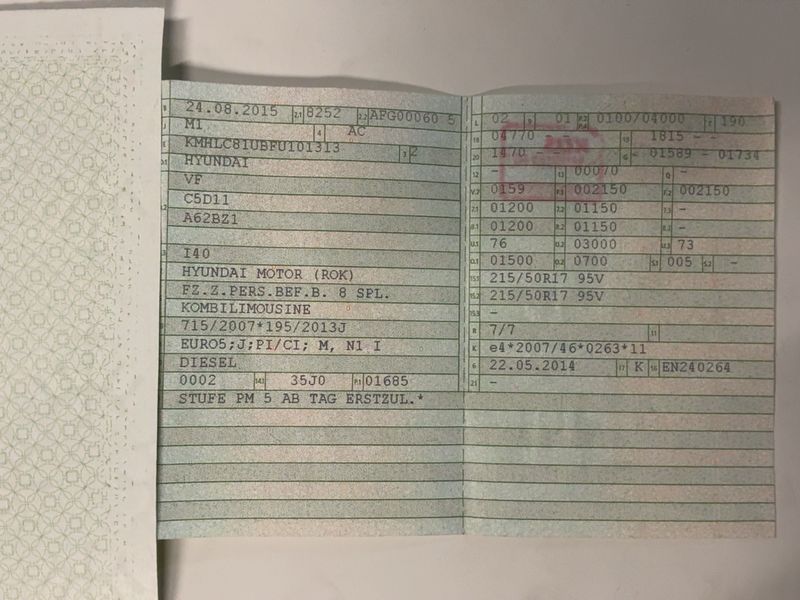 24.08.2015 2.1 8252 2.2 AFG00060 5
M1 4 AC
KMHLC81UBFU101313 3 2
HYUNDAI
VF
C5D11
A62BZ1
I40
HYUNDAI MOTOR (ROK)
FZ.Z.PERS.BEF.B. 8 SPL.
KOMBILIMOUSINE
715/2007*195/2013J
EURO5;J;PI/CI; M, N1 I
DIESEL
0002 14.1 35J0 P.1 01685
STUFE PM 5 AB TAG ERSTZUL.*
L 02 9 01 P.2 P.4 0100/04000 T 190
18 04770 - - 19 1815 - -
20 1470 - - G 01589 - 01734
12 - 13 00070 Q -
V.7 0159 F.1 002150 F.2 002150
7.1 01200 7.2 01150 7.3 -
8.1 01200 8.2 01150 8.3 -
U.1 76 U.2 03000 U.3 73
O.1 01500 O.2 0700 S.1 005 S.2 -
15.1 215/50R17 95V
15.2 215/50R17 95V
15.3 -
R 7/7 11
K e4*2007/46*0263*11
6 22.05.2014 17 K 16 EN240264
21 -